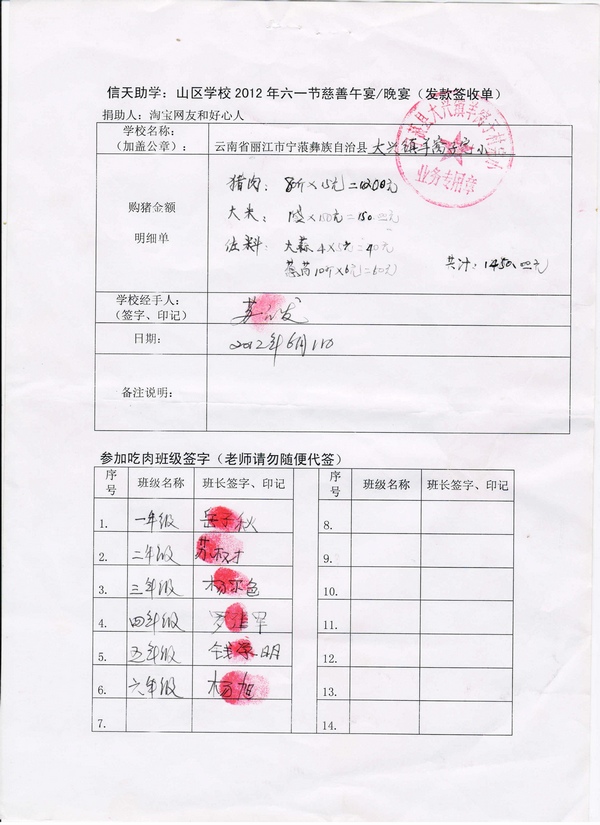 信天助学：山区学校2012年六一节慈善午宴/晚宴（发款签收单）
捐助人：淘宝网友和好心人
学校名称：
（加盖公章）：
云南省丽江市宁蒗彝族自治县大兴镇羊窝子完小
业务专用章
购猪金额
明细单
猪肉：80斤×15元=1200元
大米：
×150元=150.00元
佐料：大蒜4×5元=40元
10斤×6元=60元
共计：1450.00元
学校经手人：
（签字、印记）
日期：
2012年6月1日
备注说明：
参加吃肉班级签字（老师请勿随便代签）
序号 班级名称 班长签字、印记 序号 班级名称 班长签字、印记
1. 一年级 岳子秋 8.
2. 二年级 苏权才 9.
3. 三年级 10.
4. 四年级 11.
5. 五年级 12.
6. 六年级 杨旭 13.
7. 14.